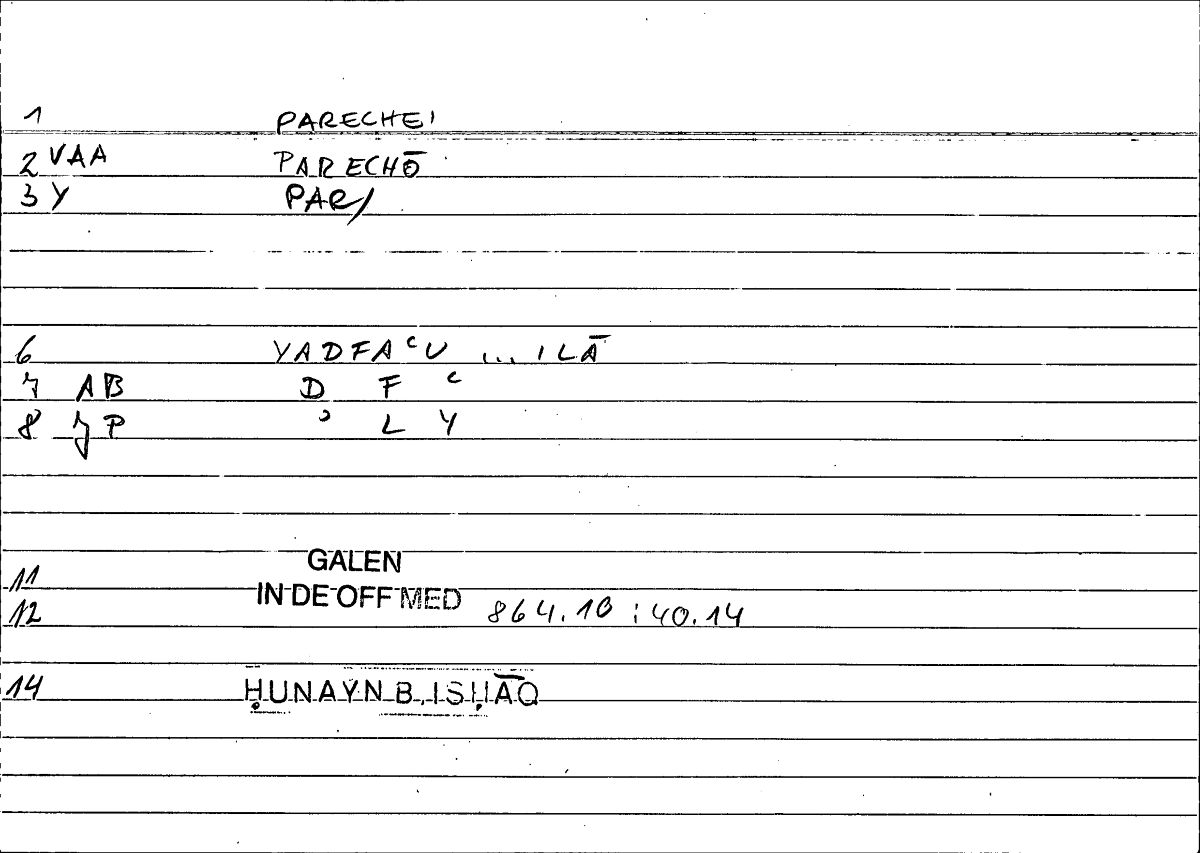 1 PARECHEI
2 VAA PARECHŌ
3 Y PAR/
6 YADFAʿU ... ILĀ
7 AB D F ʿ
8 JP ʾ L Y
GALEN
11
12 IN DE OFF MED 864.10 : 40.14
14 ḤUNAYN B. ISḤĀQ